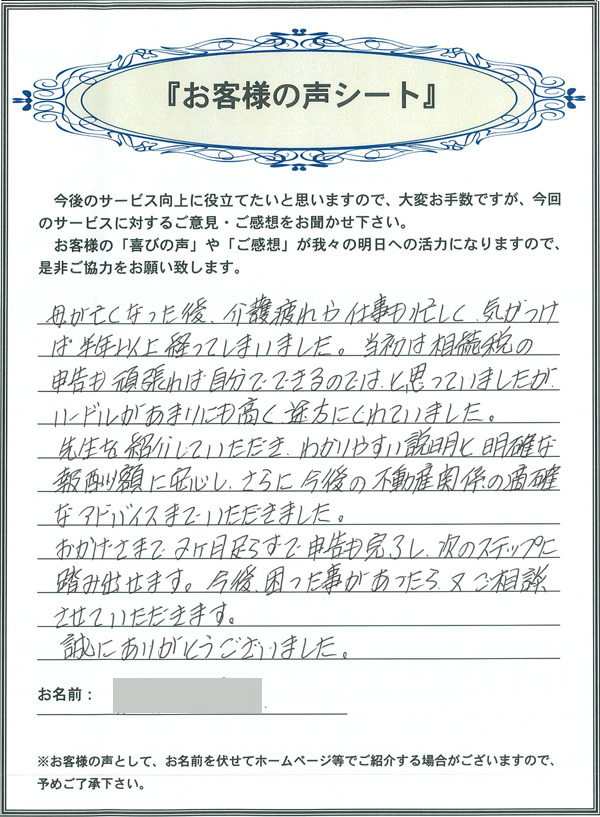 『お客様の声シート』
今後のサービス向上に役立てたいと思いますので、大変お手数ですが、今回
のサービスに対するご意見・ご感想をお聞かせ下さい。
お客様の「喜びの声」や「ご感想」が我々の明日への活力になりますので、
是非ご協力をお願い致します。
母が亡くなった後、介護疲れや仕事も忙しく、気がつけ
ば半年以上経ってしまいました。当初は相続税の
申告も頑張れば自分でできるのでは、と思っていましたが、
ハードルがあまりにも高く、途方にくれていました。
先生を紹介していただき、わかりやすい説明と明確な
報酬額に安心し、さらに今後の不動産関係の適確
なアドバイスまでいただきました。
おかげさまで2ヶ月足らずで申告も完了し、次のステップに
踏み出せます。今後、困った事があったら、又ご相談
させていただきます。
誠にありがとうございました。
お名前：
※お客様の声として、お名前を伏せてホームページ等でご紹介する場合がございますので、
予めご了承下さい。